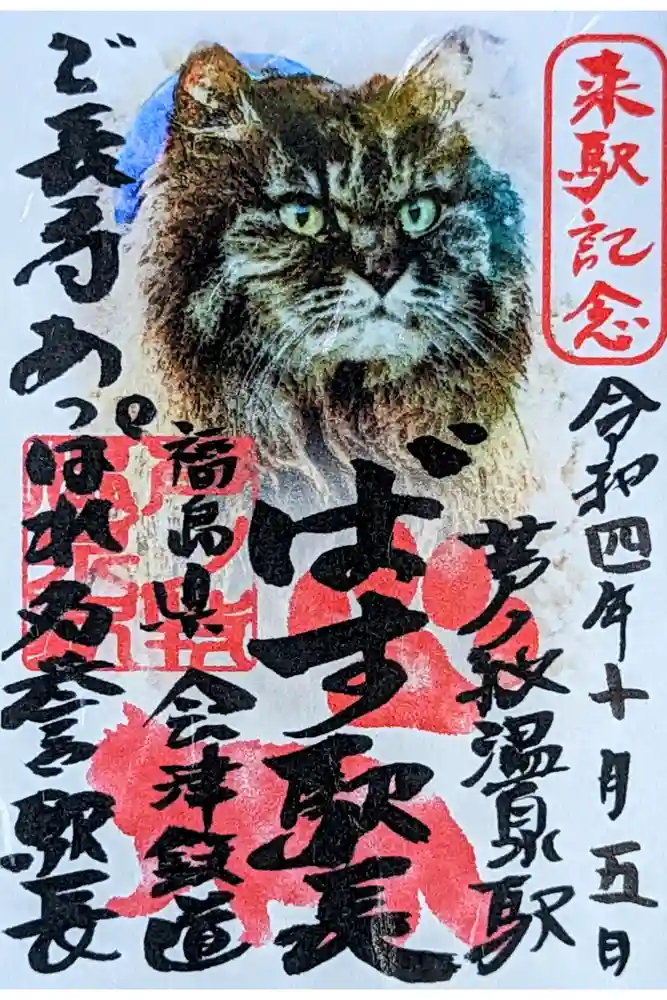 来駅記念
令和四年十月五日
芦ノ牧温泉駅
ばす駅長
福島県 会津鉄道
ご長寿あっぱれ名誉駅長